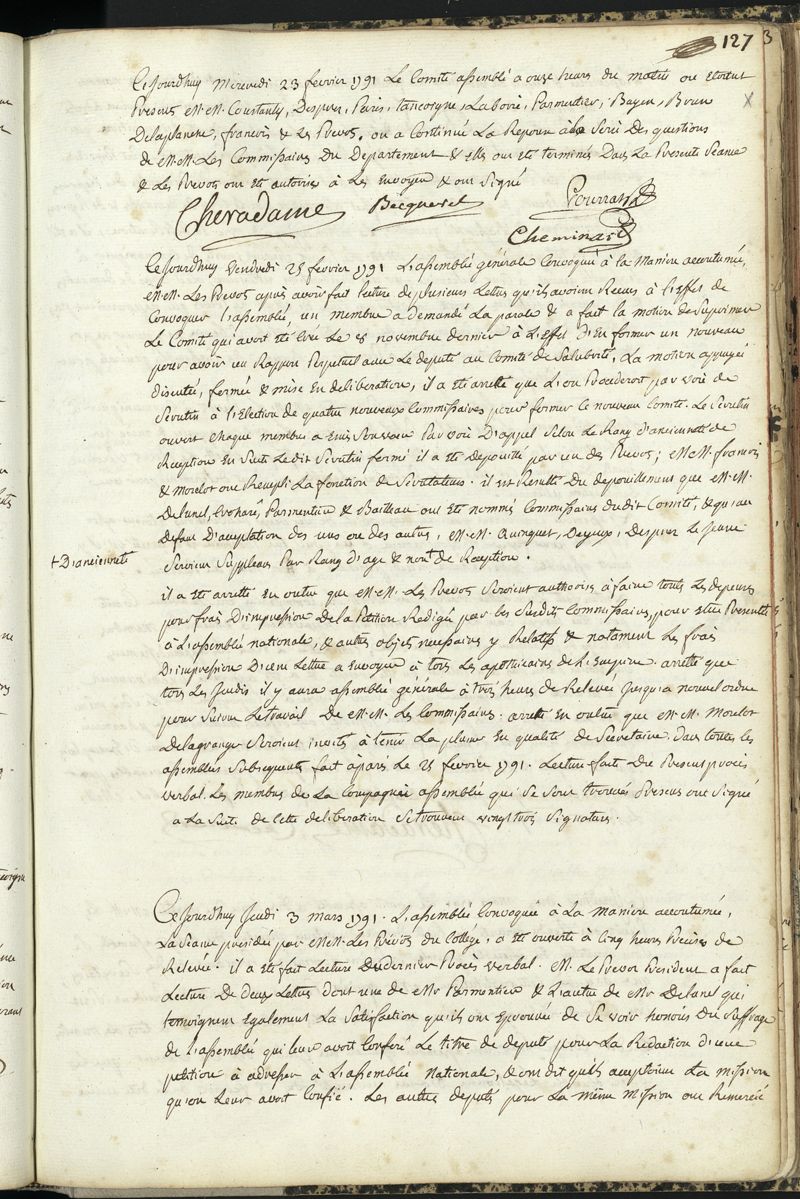 127
3
Cejourdhuy Mercredi 23 fevrier 1791 Le Comité assemblé a onze heurs du matin ou etoient
Presens M.M. Constanty, Despres, Paris, Tancoigne, Laborie, Parmentier, Bayen, Brun
Delaplanche, francois & Les Prevos. on a Continué La Reponse à la Serie Des questions
de M.M. Les Commissaires Du Departement & elles ont eté terminés Dans La Presente Seance
& Les Prevots ont eté autorisés à Les Envoyer & ont Signé
Cheradame Becqueret Pourrat
Cheminard
Cejourdhuy Vendredi 25 fevrier 1791 L'assemblé générale Convoquée à la Maniere accoutumée,
M.M. Les Prevos après avoir fait lecture de plusieurs Lettres qu'ils avoient Recues à L'effet de
Convoquer L'assemblée, un membre a demandé La parole & a fait la motion de Suprimer
Le Comité qui avoit eté Crée Le 8 novembre dernier à L'effet D'en former un nouveau
pour avoir un Rapport Perpetuel avec Le deputé au Comité de Salubrité, La motion appuyée
discutée, fermée & mise En deliberation, il a eté arretté que L'on Procederoit par voie de
Scrutin à L'Election de quatre nouveaux Commissaires pour former Ce nouveau Comité. Le Scrutin
ouvert Chaque membre a Emis Son voeu Par voie D'appel Selon Le Rang d'ancienneté de
Reception En Suite Ledit Scrutin fermé il a eté depouillé par un des Prevos; M.M. francois
& Morelot ont Rempli La fonction de Scrutateurs. il est Resulté Du depouillement que M.M.
Delunel, Parmentier & Bailleau ont eté nommés Commissaires dudit Comité, & qu'au
defaut D'acceptation des uns ou des autres, M.M. Quinquet, Deyeux, Despres Le jeune
+ D'ancienneté
Seroient Suppleans Par Rang d'age & non + de Reception.
il a eté arretté En outre que M.M. Les Prevos Seroient authorisés à faire toutes Les depenses
pour frais D'impression De la Petition Redigée par les Susdits Commissaires, pour etre Presentée
à L'assemblé nationale, & autres objets necessaires y Relatifs & notament Les frais
D'impression D'une Lettre a Envoyer à tous Les apothicaires de L'Empire. arretté que
tous Les Jeudis il y aura assemblée générale à trois heures de Relevée Jusqu'a nouvel ordre
pour Suivre Le travail De M.M. Les Commissaires. arretté En outre que M.M. Morelot
Delagrange Seroient invités à tenir La plume En qualité de Secretaires Dans toutes les
assemblées Subsequentes fait à paris Le 25 fevrier 1791. Lecture fait Du Present procès
verbal. Les membres de La Compagnie assemblée qui Se Sont trouvés Presens ont Signé
a La Suite de Cette deliberation Se trouvent vingt trois Signatures.
Cejourdhuy Jeudi 3 mars 1791. L'assemblée Convoquée à La Maniere accoutumée,
La Seance presidée par M.M. Les Prévots du Collége, a eté ouverte à Cinq heures Precises de
Relevée. il a eté fait Lecture Du dernier Procès Verbal. M. Le Prevot President a fait
Lecture De Deux Lettres dont une de Mr Parmentier & L'autre de Mr Delunel qui
temoignent Egalement La Satisfaction qu'ils ont Eprouvée de Se voir honorés Du Suffrage
de L'assemblé qui leur avoit Conferé Le titre de deputé pour La Redaction d'une
petition à adresser à L'assemblée Nationale, & ont dit qu'ils acceptoient La mission
qu'on Leur avoit Confié. Les autres deputés pour La même Mission ont Remercié